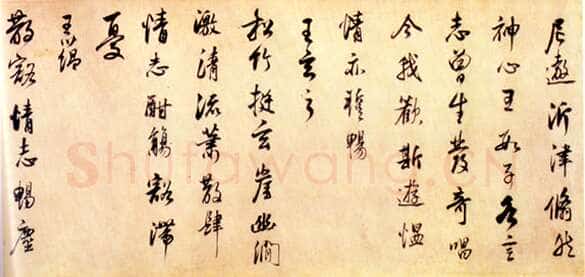 尼遨沂津翛然
神心王數子各言
志曾生發奇唱
今我歡斯遊慍
情亦暫暢
王玄之
松竹挺玄崖幽澗
激清流蕭散肆
情志酣觴豁滯
憂
王蘊
散豁情志暢塵
Shufawang.CN